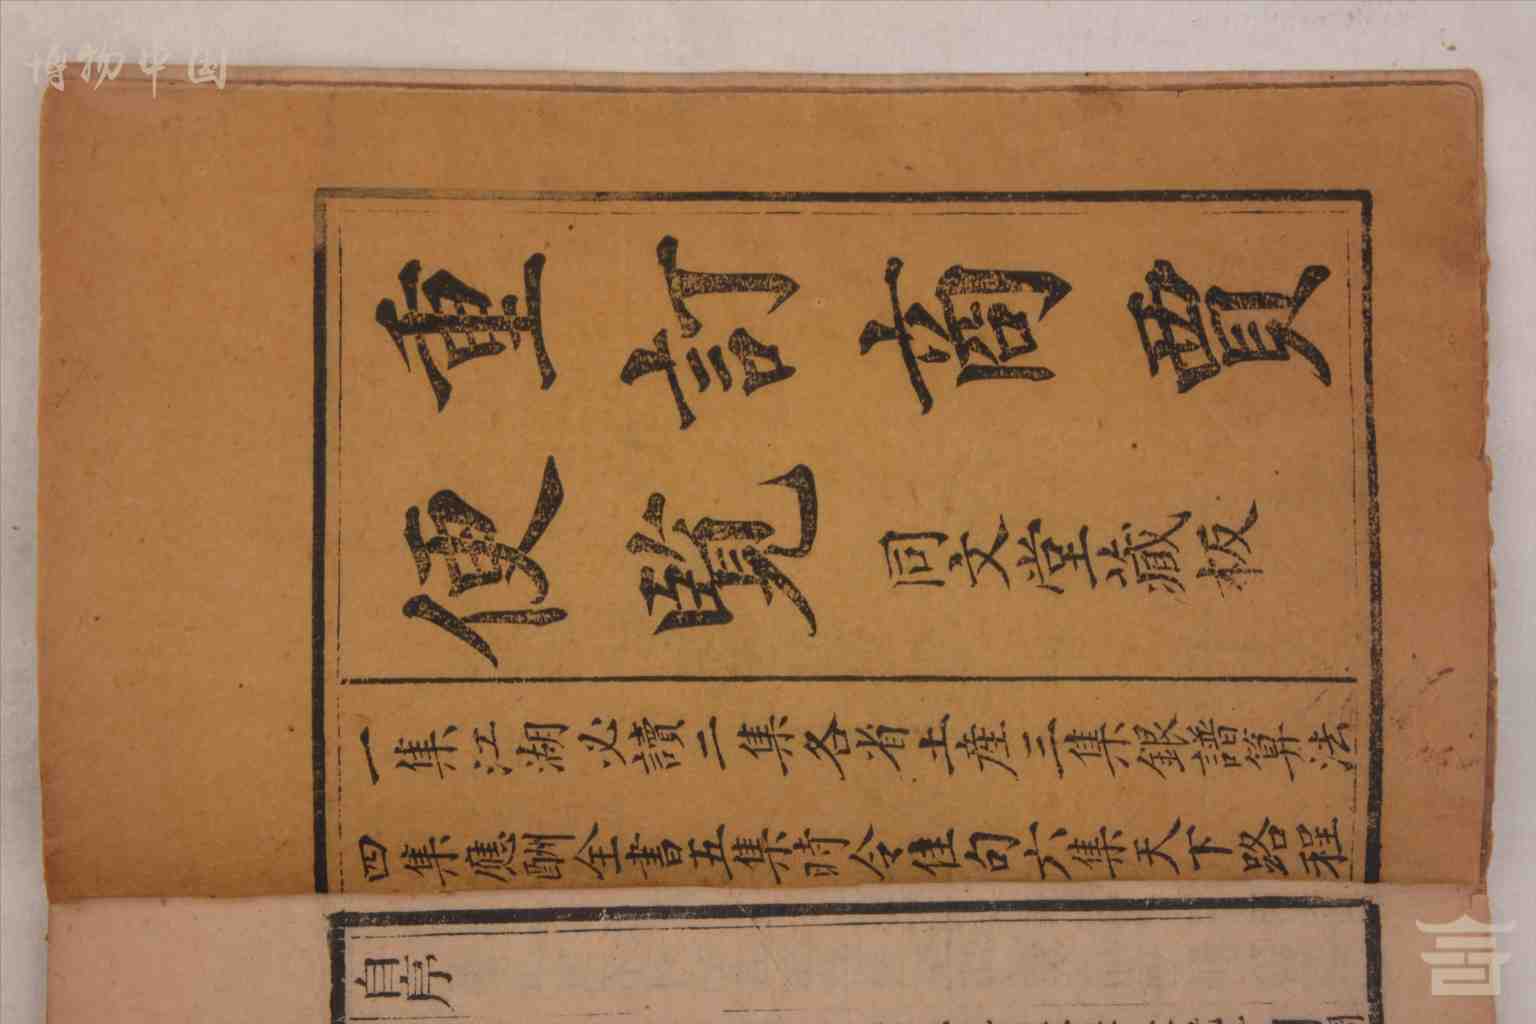 博物中国
重訂商賈
便覽
同文堂藏板
一集江湖必讀二集各省土產三集銀譜算法
四集應酬全書五集時令佳句六集天下路程
自序